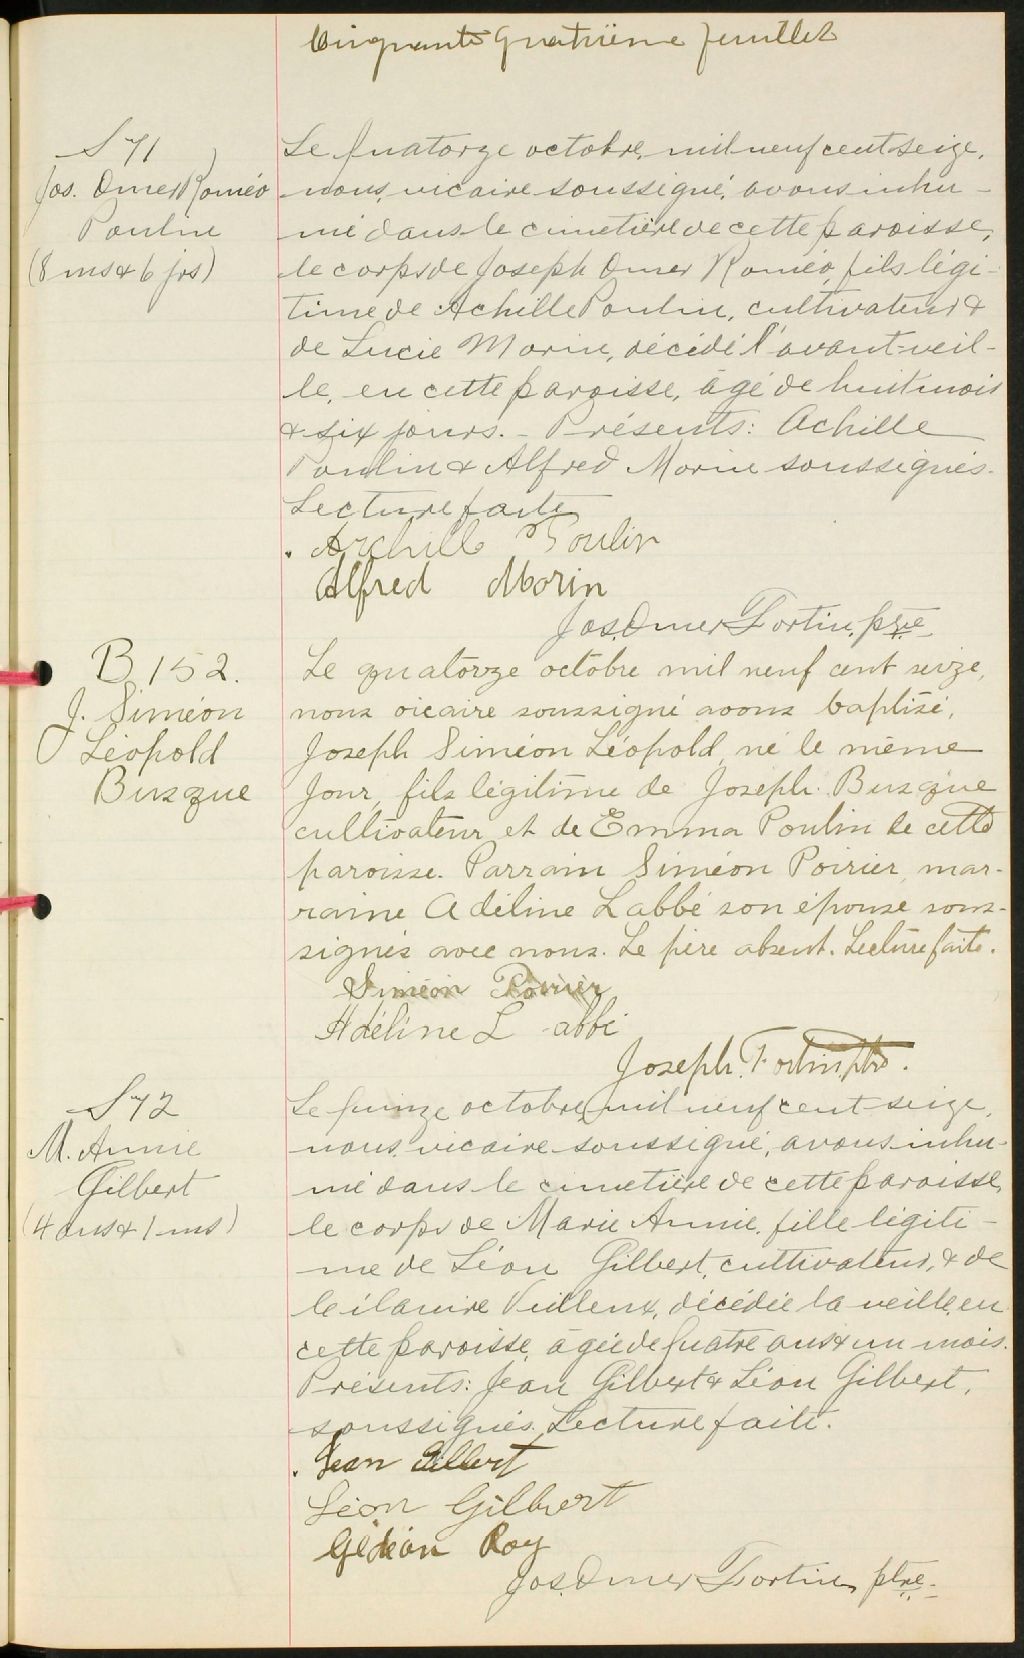 Cinquante Quatrième feuillet
S 71
Jos. Omer Roméo
Poulin
(8 ms & 6 jrs)
Le quatorze octobre, mil neuf cent seize,
nous, vicaire soussigné, avons inhu-
mé dans le cimetière de cette paroisse,
le corps de Joseph Omer Roméo, fils légi-
time de Achille Poulin, cultivateur, &
de Lucie Morin, décédé l'avant-veil-
le, en cette paroisse, âgé de huit mois
& six jours. - Présents: Achille
Poulin & Alfred Morin soussignés.
Lecture faite
Archille Poulin
Alfred Morin
Jos. Omer Fortin, ptre
B 152.
J. Siméon
Léopold
Busque
Le quatorze octobre mil neuf cent seize,
nous vicaire soussigné avons baptisé,
Joseph Siméon Léopold, né le même
jour, fils légitime de Joseph Busque
cultivateur et de Emma Poulin de cette
paroisse. Parrain Siméon Poirier, mar-
raine Adéline Labbé son épouse sous-
signés avec nous. Le père absent. Lecture faite.
Siméon Poirier
Adéline Labbé
Joseph. Fortin ptre.
S 72
M. Annie
Gilbert
(4 ans & 1 ms)
Le quinze octobre, mil neuf cent seize,
nous, vicaire soussigné, avons inhu-
mé dans le cimetière de cette paroisse,
le corps de Marie Annie, fille légiti-
me de Léon Gilbert, cultivateur, & de
Veilleux, décédée la veille, en
cette paroisse, âgée de quatre ans & un mois.
Présents: Jean Gilbert & Léon Gilbert,
soussignés. Lecture faite.
Jean Gilbert
Léon Gilbert
Gédéon Roy
Jos. Omer Fortin, ptre.